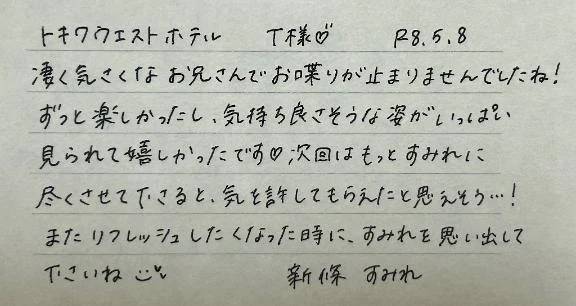 トキワウエストホテル T様♡ R8.5.8
凄く気さくなお兄さんでお喋りが止まりませんでしたね!
ずっと楽しかったし、気持ち良さそうな姿がいっぱい
見られて嬉しかったです♡次回はもっとすみれに
尽くさせて下さると、気を許してもらえたと思えそう…!
またリフレッシュしたくなった時に、すみれを思い出して
下さいね 新條 すみれ